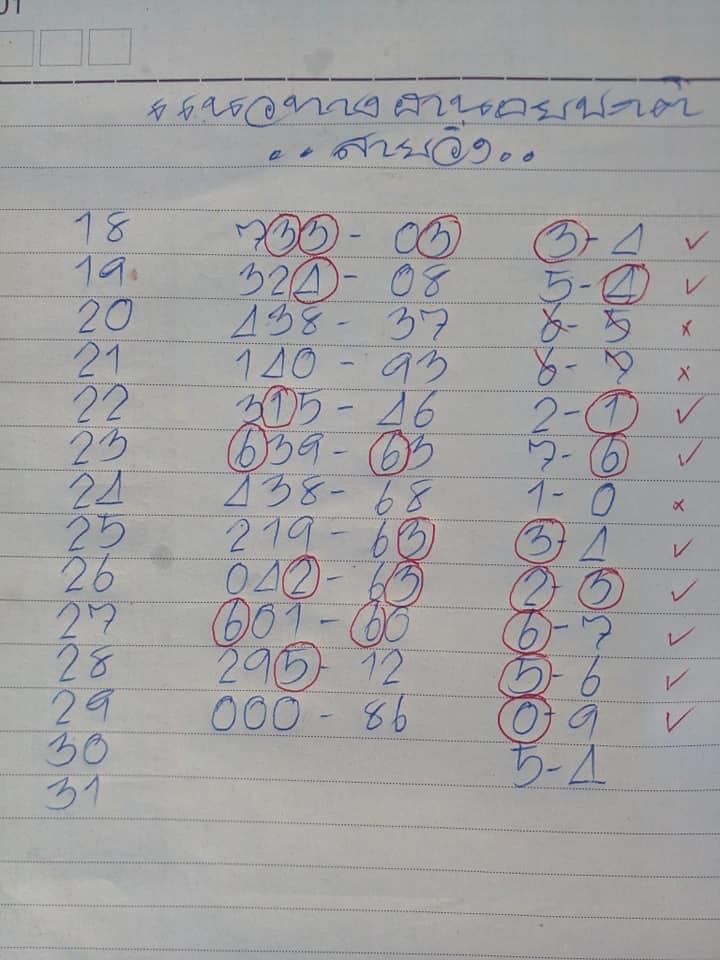 01
แนวทางฮานอยปกติ
..สายวิ่ง..
18 733 - 03 3-4 ✓
19 324 - 08 5-4 ✓
20 438 - 37 6-5 ×
21 140 - 93 6-7 ×
22 315 - 46 2-1 ✓
23 639 - 63 7-6 ✓
24 438 - 68 1-0 ×
25 219 - 63 3-4 ✓
26 042 - 63 2-3 ✓
27 601 - 60 6-7 ✓
28 295 - 12 5-6 ✓
29 000 - 86 0-9 ✓
30 5-4
31